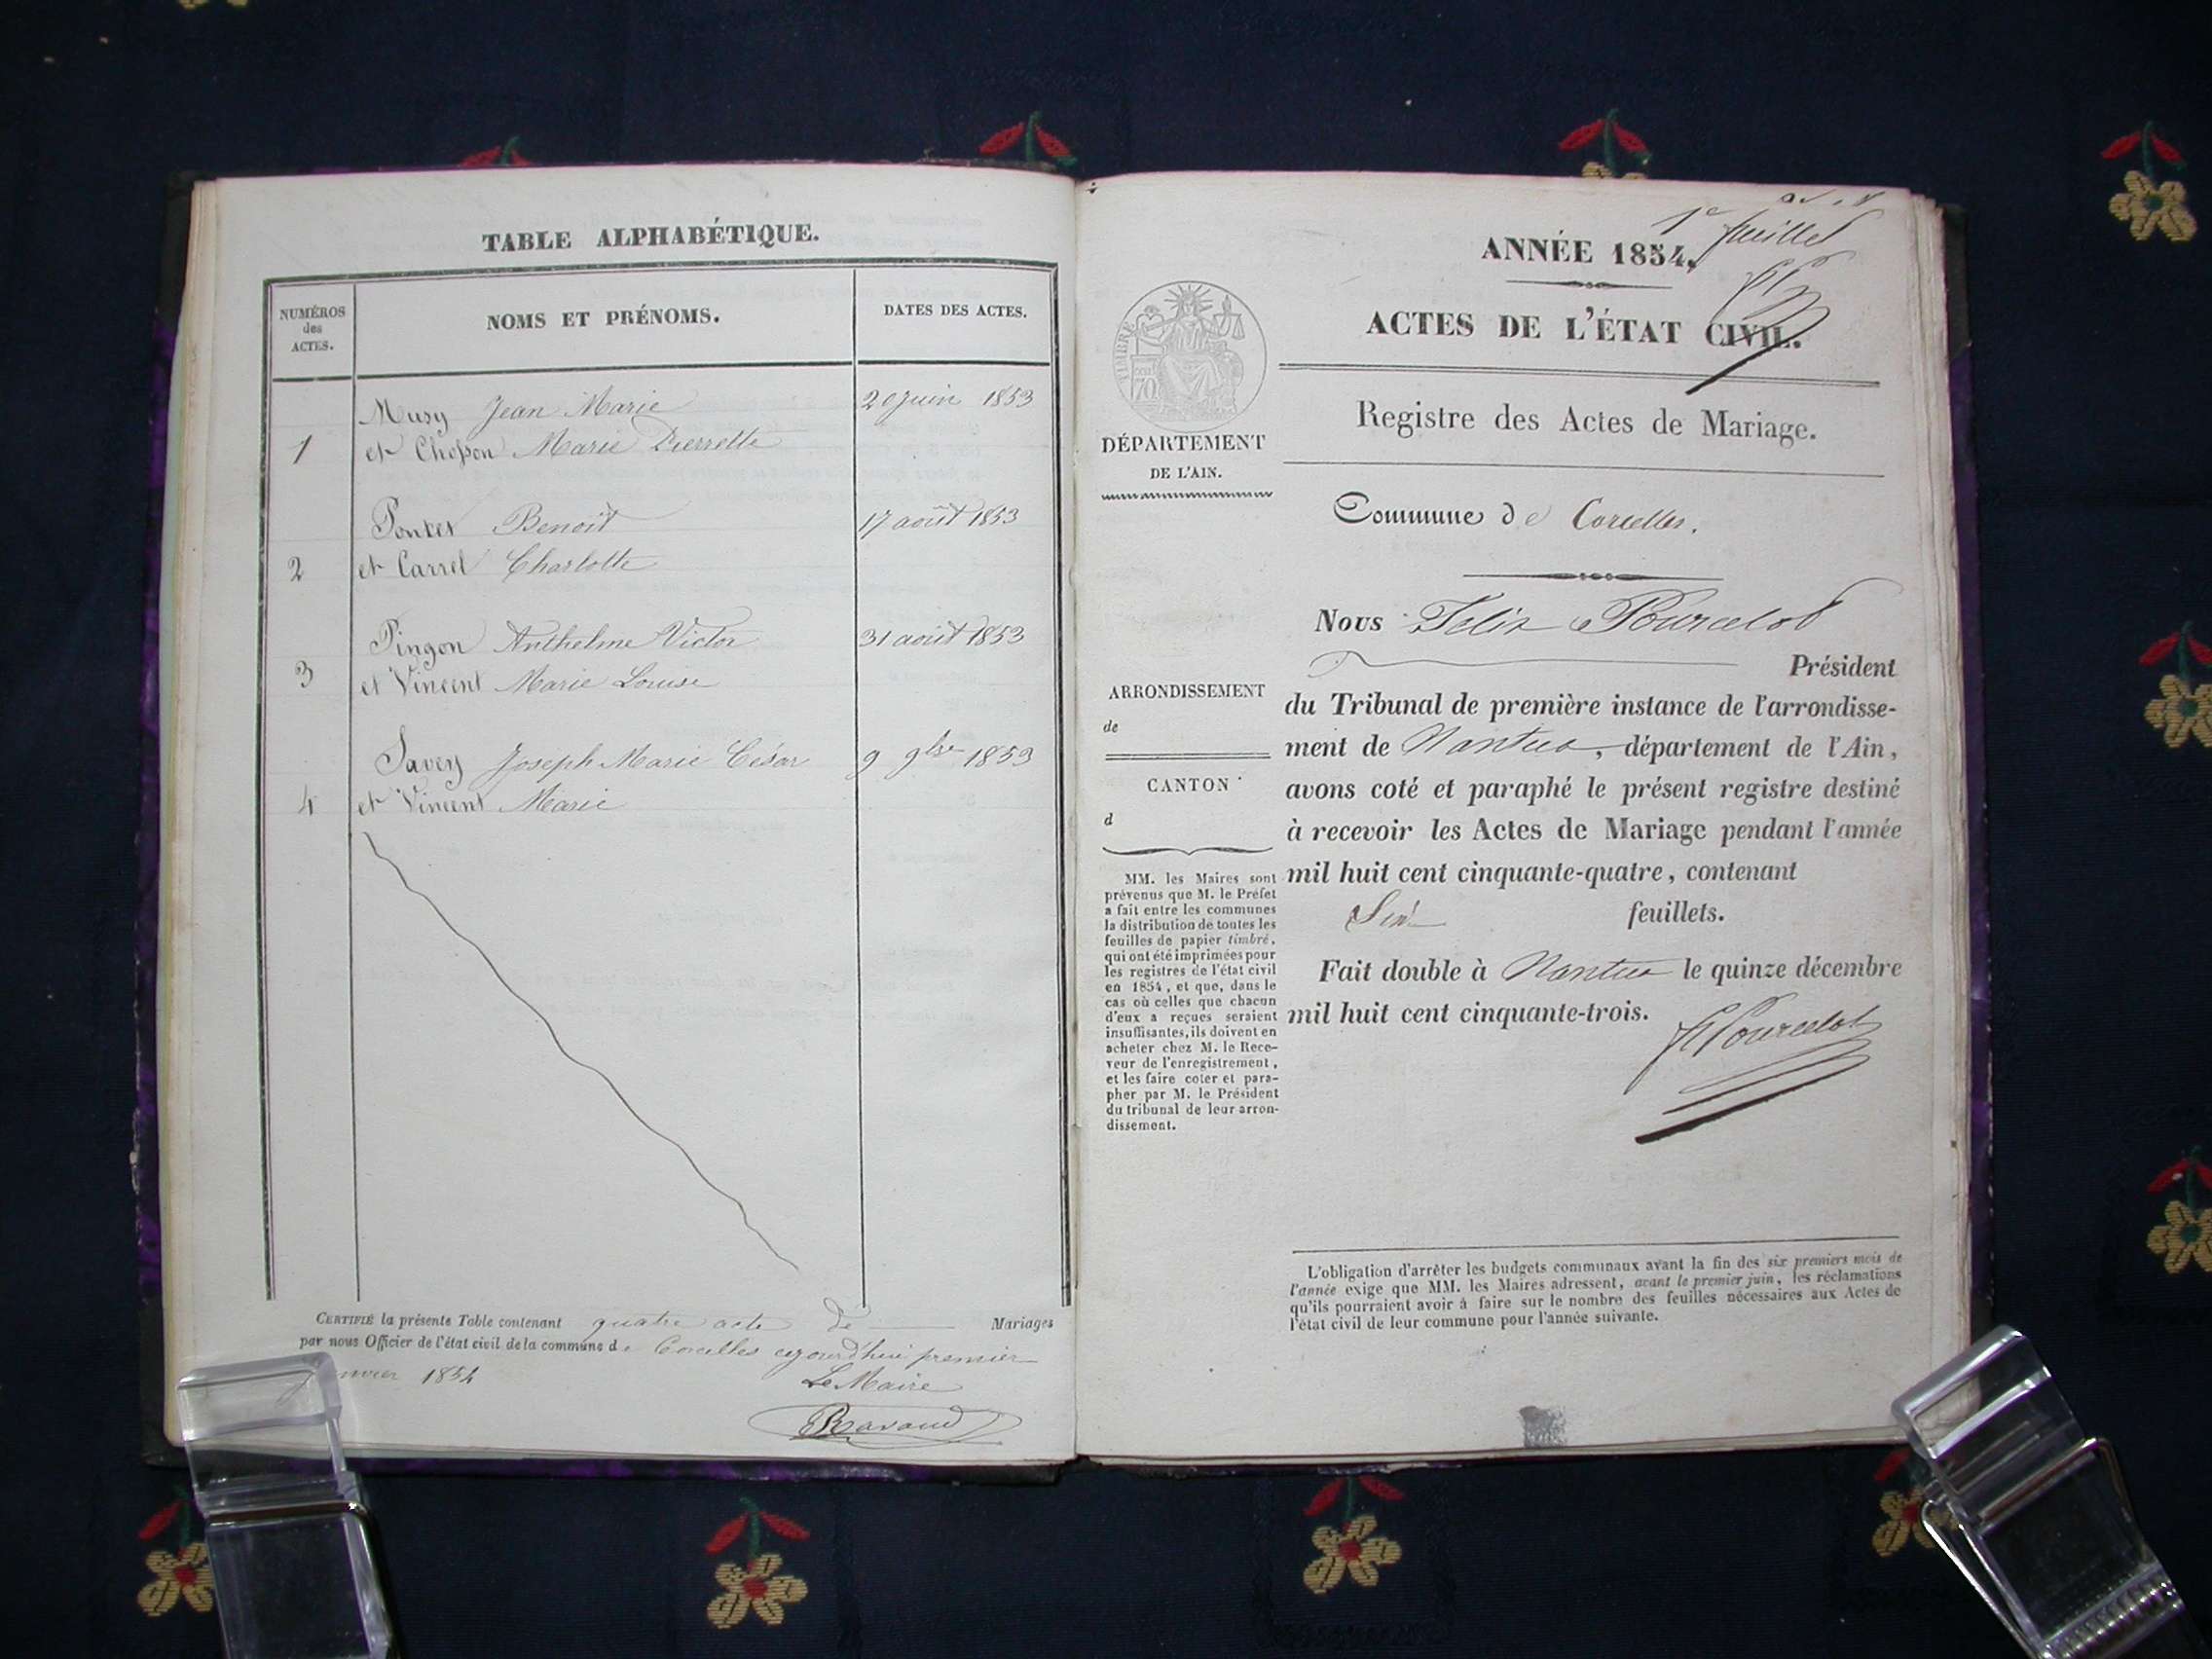 TABLE ALPHABÉTIQUE.
NUMÉROS
des
ACTES.
NOMS ET PRÉNOMS.
DATES DES ACTES.
Musy Jean Marie 20 juin 1853
1 et Chosson Marie Pierrette
Pontet Benoit 17 août 1853
2 et Carrel Charlotte
Pingon Anthelme Victor 31 août 1853
3 et Vincent Marie Louise
Savey Joseph Marie César 9 9bre 1853
4 et Vincent Marie
CERTIFIÉ la présente Table contenant quatre acte de Mariages
par nous Officier de l'état civil de la commune de Corcelles aujourd'hui premier
janvier 1854
Le Maire
Ravaud
1er feuillet
ANNÉE 1854.
ACTES DE L'ÉTAT CIVIL.
TIMBRE
70
DÉPARTEMENT
DE L'AIN.
Registre des Actes de Mariage.
Commune de Corcelles.
Nous Félix Pourcelot
Président
du Tribunal de première instance de l'arrondisse-
ment de Nantua, département de l'Ain,
avons coté et paraphé le présent registre destiné
à recevoir les Actes de Mariage pendant l'année
mil huit cent cinquante-quatre, contenant
Six feuillets.
Fait double à Nantua le quinze décembre
mil huit cent cinquante-trois.
Pourcelot
ARRONDISSEMENT
de
CANTON
d
MM. les Maires sont
prévenus que M. le Préfet
a fait entre les communes
la distribution de toutes les
feuilles de papier timbré,
qui ont été imprimées pour
les registres de l'état civil
en 1854, et que, dans le
cas où celles que chacun
d'eux a reçues seraient
insuffisantes, ils doivent en
acheter chez M. le Rece-
veur de l'enregistrement,
et les faire coter et para-
pher par M. le Président
du tribunal de leur arron-
dissement.
L'obligation d'arrêter les budgets communaux avant la fin des six premiers mois de
l'année exige que MM. les Maires adressent, avant le premier juin, les réclamations
qu'ils pourraient avoir à faire sur le nombre des feuilles nécessaires aux Actes de
l'état civil de leur commune pour l'année suivante.